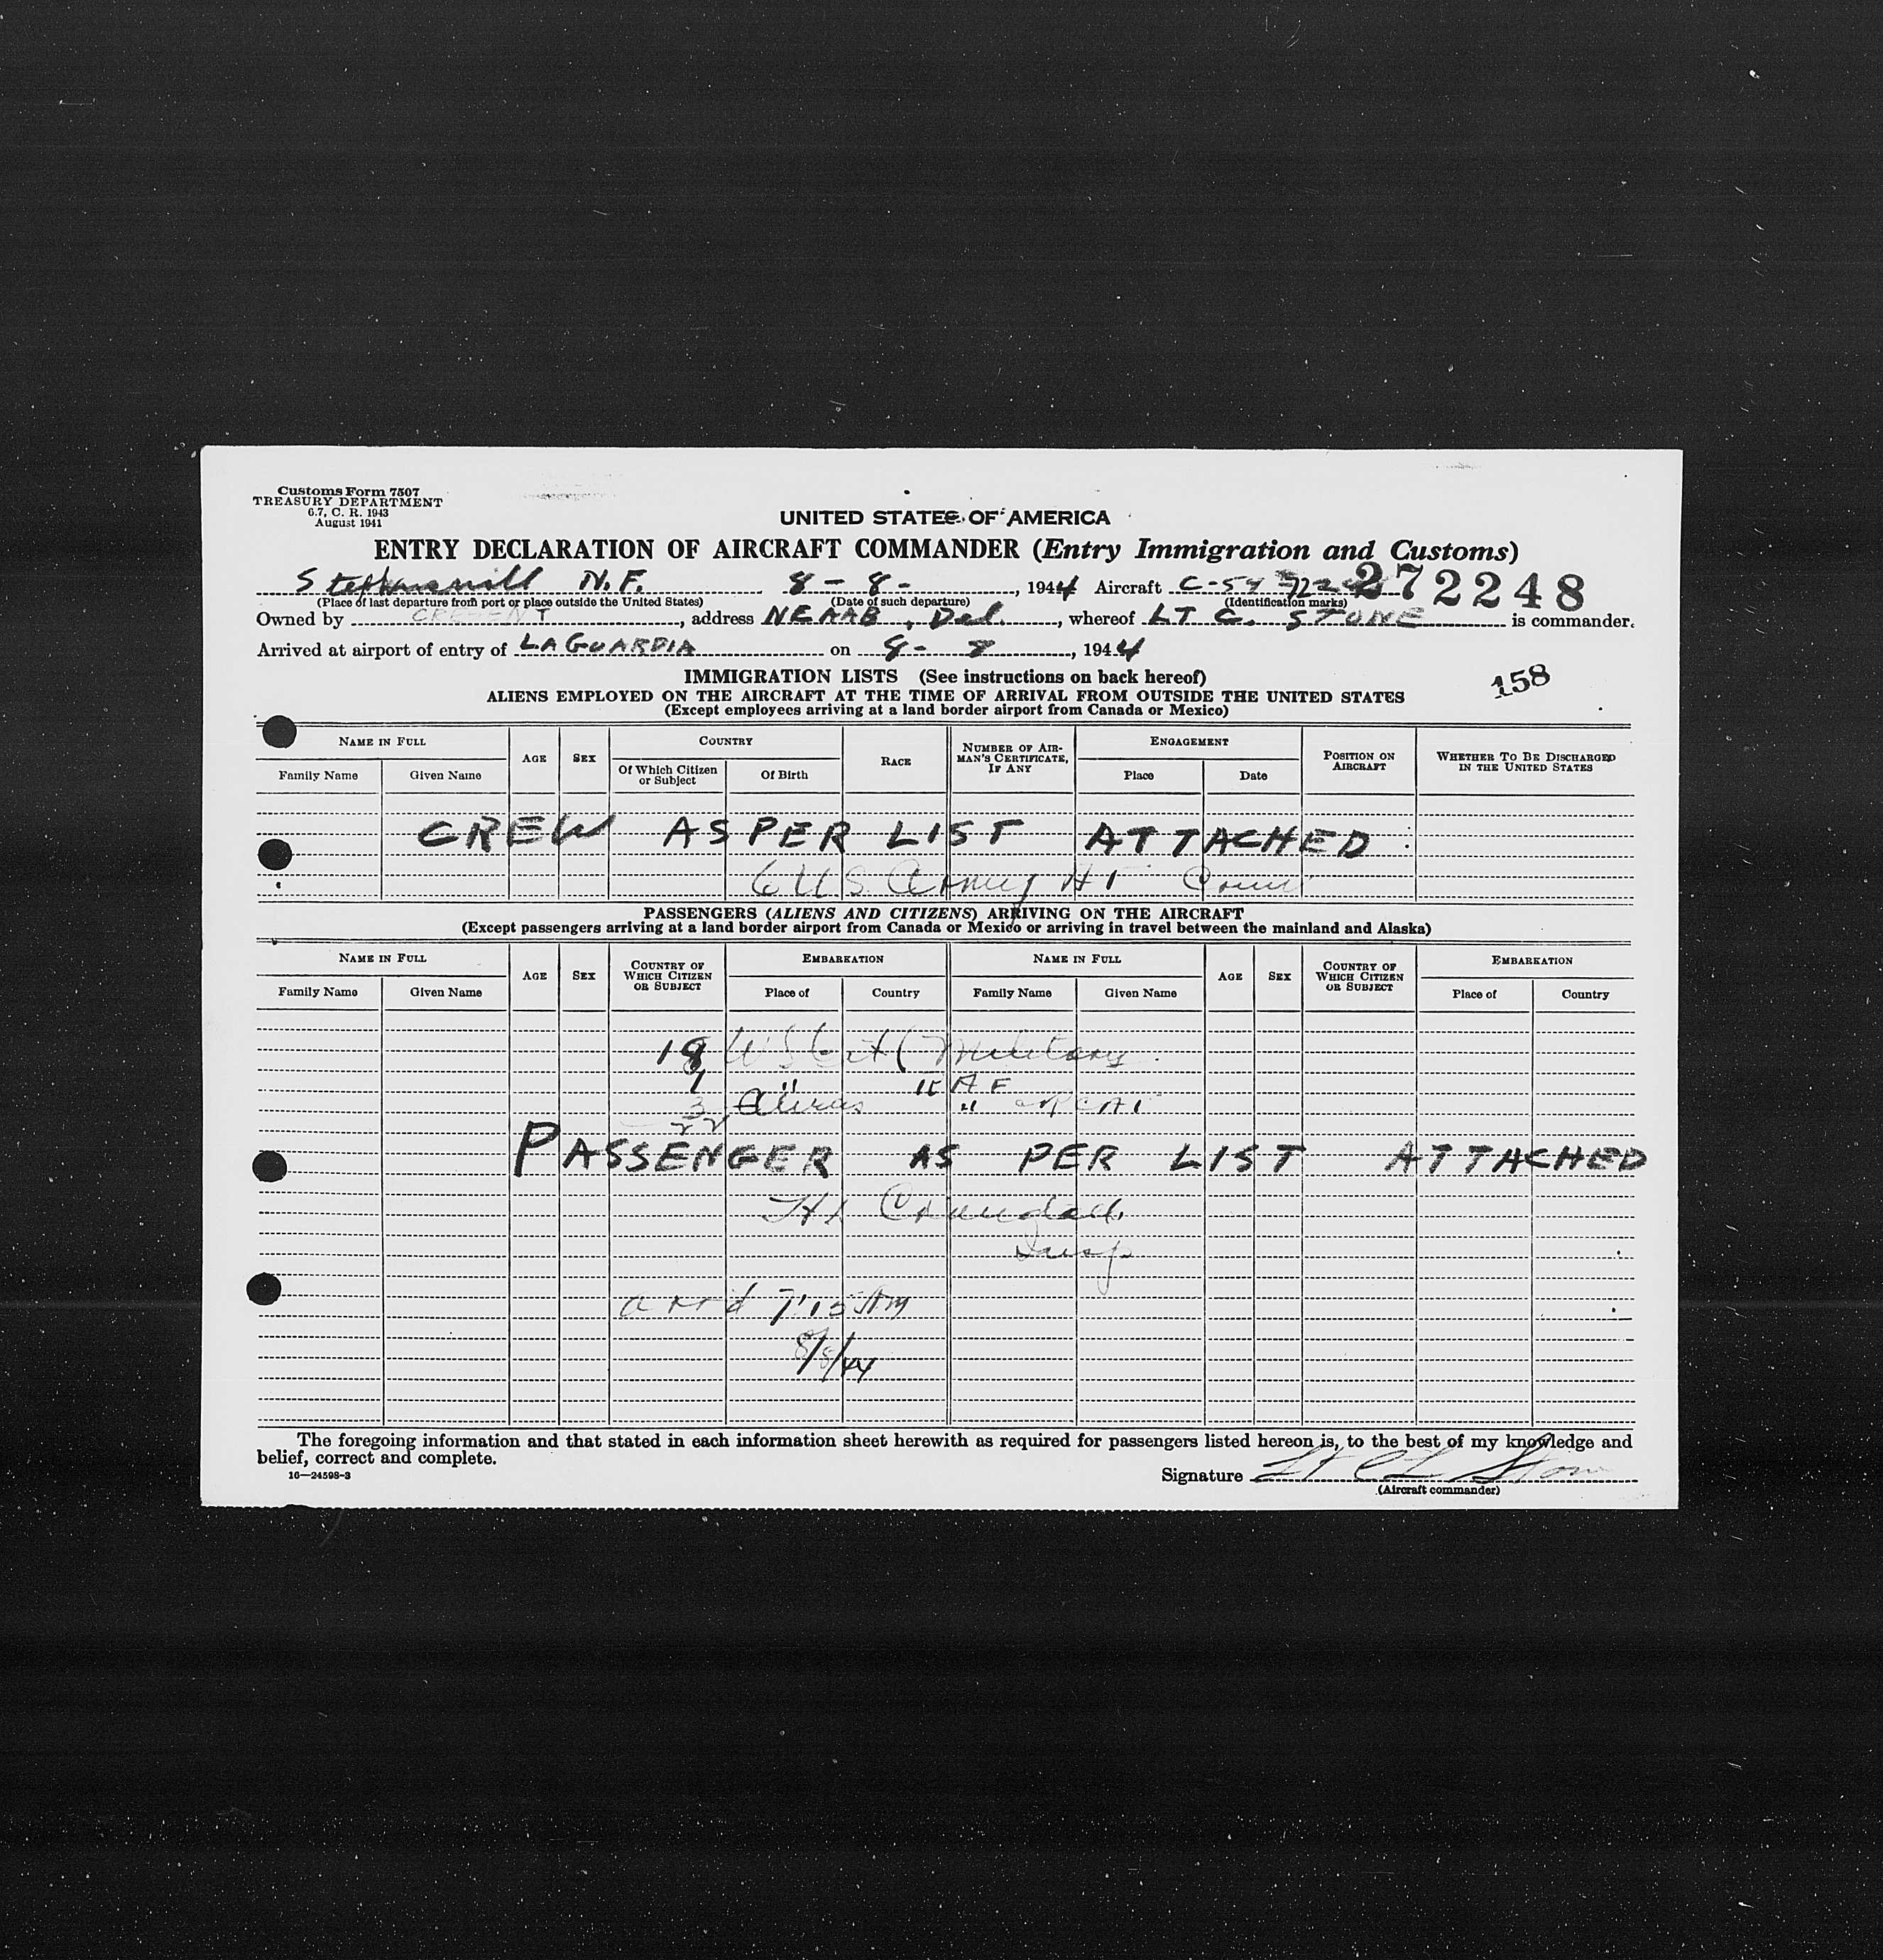 Customs Form 7507
TREASURY DEPARTMENT
6.7, C. R. 1943
August 1941
UNITED STATES OF AMERICA
ENTRY DECLARATION OF AIRCRAFT COMMANDER (Entry Immigration and Customs)
N.F. 8-8-, 1944 Aircraft C-54 272248
(Place of last departure from port or place outside the United States) (Date of such departure) (Identification marks)
Owned by, address NEAAB, Del., whereof LT C. STONE is commander.
Arrived at airport of entry of LAGUARDIA on 8-8, 1944
158
IMMIGRATION LISTS (See instructions on back hereof)
ALIENS EMPLOYED ON THE AIRCRAFT AT THE TIME OF ARRIVAL FROM OUTSIDE THE UNITED STATES
(Except employees arriving at a land border airport from Canada or Mexico)
NAME IN FULL AGE SEX COUNTRY RACE NUMBER OF AIRMAN'S CERTIFICATE, IF ANY ENGAGEMENT POSITION ON AIRCRAFT WHETHER TO BE DISCHARGED IN THE UNITED STATES
Family Name Given Name Of Which Citizen or Subject Of Birth Place Date
CREW AS PER LIST ATTACHED
6 US Army
PASSENGERS (ALIENS AND CITIZENS) ARRIVING ON THE AIRCRAFT
(Except passengers arriving at a land border airport from Canada or Mexico or arriving in travel between the mainland and Alaska)
NAME IN FULL AGE SEX COUNTRY OF WHICH CITIZEN OR SUBJECT EMBARKATION NAME IN FULL AGE SEX COUNTRY OF WHICH CITIZEN OR SUBJECT EMBARKATION
Family Name Given Name Place of Country Family Name Given Name Place of Country
18 Military
1 "
3 Aliens "
22
PASSENGER AS PER LIST ATTACHED
Insp
arrd 7:15 AM
8/8/44
The foregoing information and that stated in each information sheet herewith as required for passengers listed hereon is, to the best of my knowledge and
belief, correct and complete.
16—24598-3
Signature Lt C L Stone
(Aircraft commander)